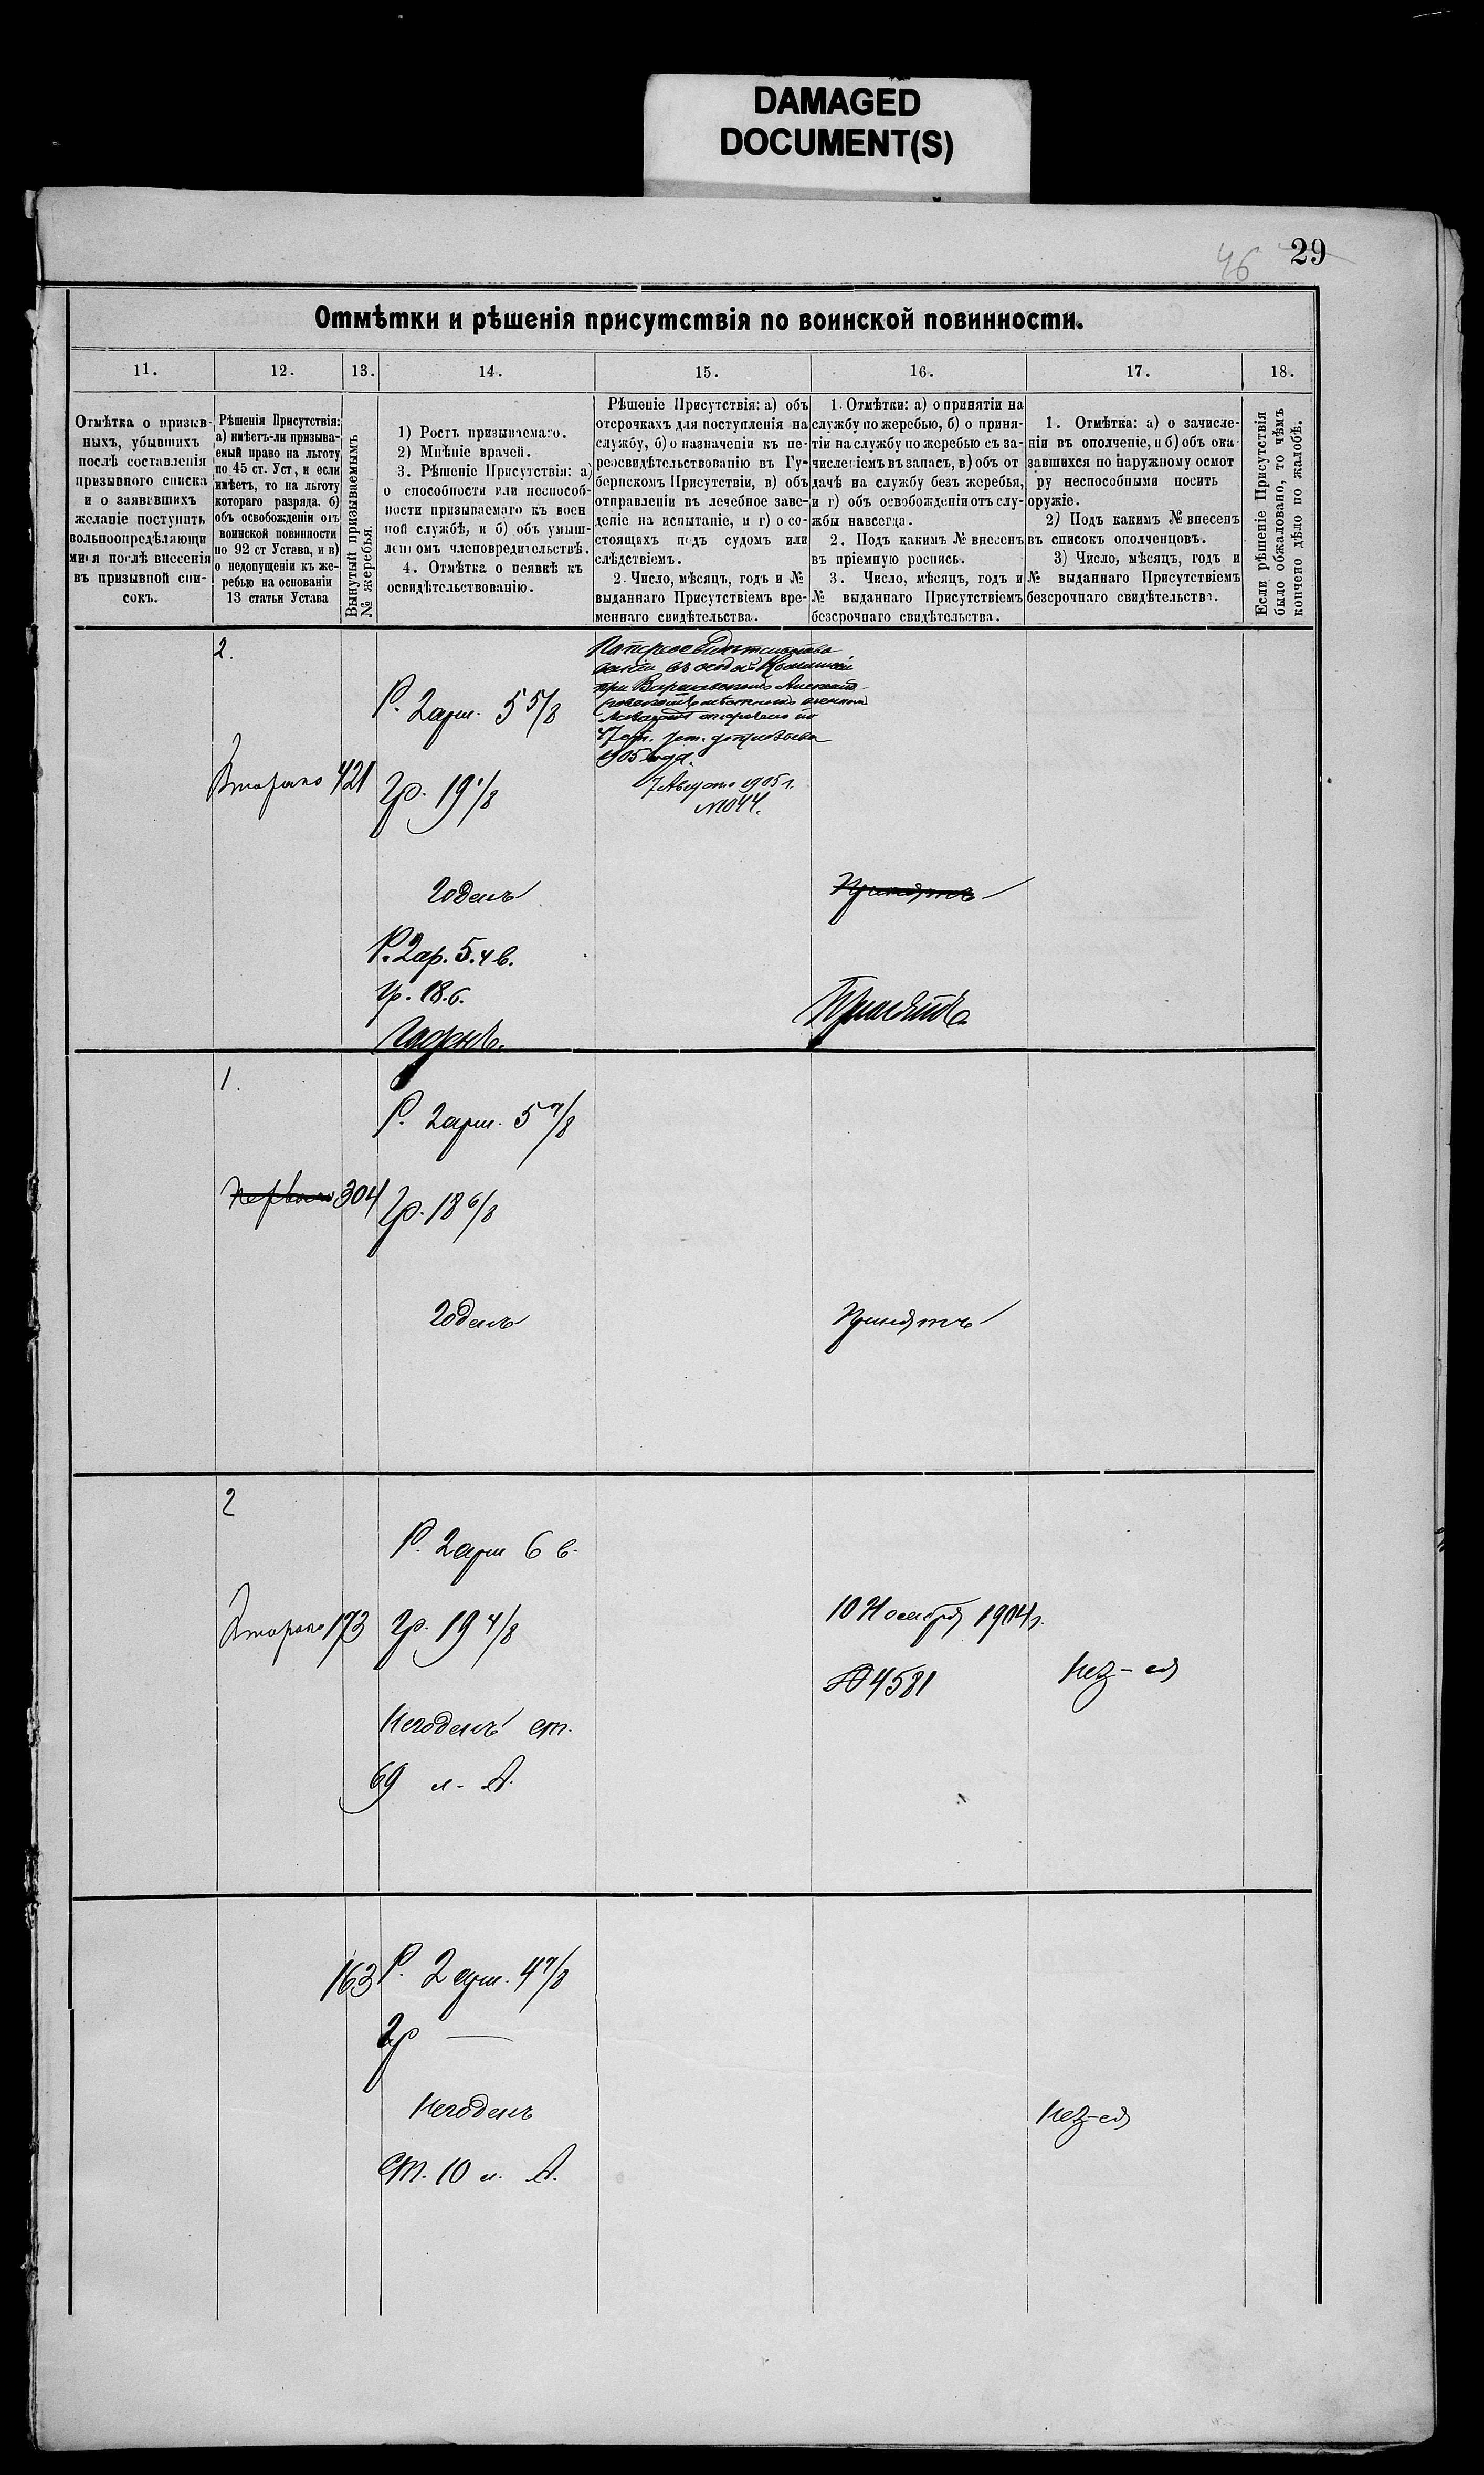 DAMAGED
DOCUMENT(S)
46 29
Отмѣтки и рѣшенія присутствія по воинской повинности.
11.
12.
13.
14.
15.
16.
17.
18.
Отмѣтка о призыв-
ныхъ, убывшихъ
послѣ составленія
призывного списка
и о заявившихъ
желаніе поступить
вольноопредѣляющи
мися послѣ внесенія
въ призывной спи-
сокъ.
Рѣшенія Присутствія:
а) имѣетъ-ли призыва-
емый право на льготу
по 45 ст. Уст, и если
имѣетъ, то на льготу
котораго разряда. б)
объ освобожденіи отъ
воинской повинности
по 92 ст Устава, и в)
о недопущеніи къ же-
ребью на основаніи
13 статьи Устава
Вынутый призываемымъ
№ жеребья.
1) Ростъ призываемаго.
2) Мнѣніе врачей.
3. Рѣшеніе Присутствія: а)
о способности или неспособ-
ности призываемаго къ воен
ной службѣ, и б) объ умыш-
леннномъ членовредительствѣ.
4. Отмѣтка о неявкѣ къ
освидѣтельствованію.
Рѣшеніе Присутствія: а) объ
отсрочкахъ для поступленія на
службу, б) о назначеніи къ пе-
реосвидѣтельствованію въ Гу-
бернскомъ Присутствіи, в) объ
отправленіи въ лечебное заве-
деніе на испытаніе, и г) о со-
стоящихъ подъ судомъ или
слѣдствіемъ.
2. Число, мѣсяцъ, годъ и №
выданнаго Присутствіемъ вре-
меннаго свидѣтельства.
1. Отмѣтки: а) о принятіи на
службу по жеребью, б) о приня-
тіи на службу по жеребью съ за-
численіемъ въ запасъ, в) объ от
дачѣ на службу безъ жеребья,
и г) объ освобожденіи отъ слу-
жбы навсегда.
2. Подъ какимъ № внесенъ
въ пріемную роспись.
3. Число, мѣсяцъ, годъ и
№ выданнаго Присутствіемъ
безсрочнаго свидѣтельства.
1. Отмѣтка: а) о зачисле-
ніи въ ополченіе, и б) объ ока-
завшихся по наружному осмот
ру неспособными носить
оружіе.
2) Подъ какимъ № внесенъ
въ списокъ ополченцовъ.
3) Число, мѣсяцъ, годъ и
№ выданнаго Присутствіемъ
безсрочнаго свидѣтельства.
Если рѣшеніе Присутствія
было обжаловано, то чѣмъ
кончено дѣло по жалобѣ.
2.
Втораго 421
Р. 2 арш. 5 5/8
Гр. 19 1/8
Годенъ
Р. 2 ар. 5.4 в.
Гр. 18.6.
Годенъ.
въ
при Варшавскомъ
47 ст. Уст. до призыва
1905 года.
7 Августа 1905 г.
№ 1044.
Принятъ
Принятъ
1.
Перваго 304
Р. 2 арш. 5 7/8
Гр. 18 6/8
Годенъ
Принятъ
2
Втораго 173
Р. 2 арш 6 в.
Гр. 19 4/8
Негоденъ ст.
69 л. А.
10 Ноября 1904 г.
№ 4581
163
Р. 2 арш. 4 7/8
Гр —
Негоденъ
Ст. 10 л. А.